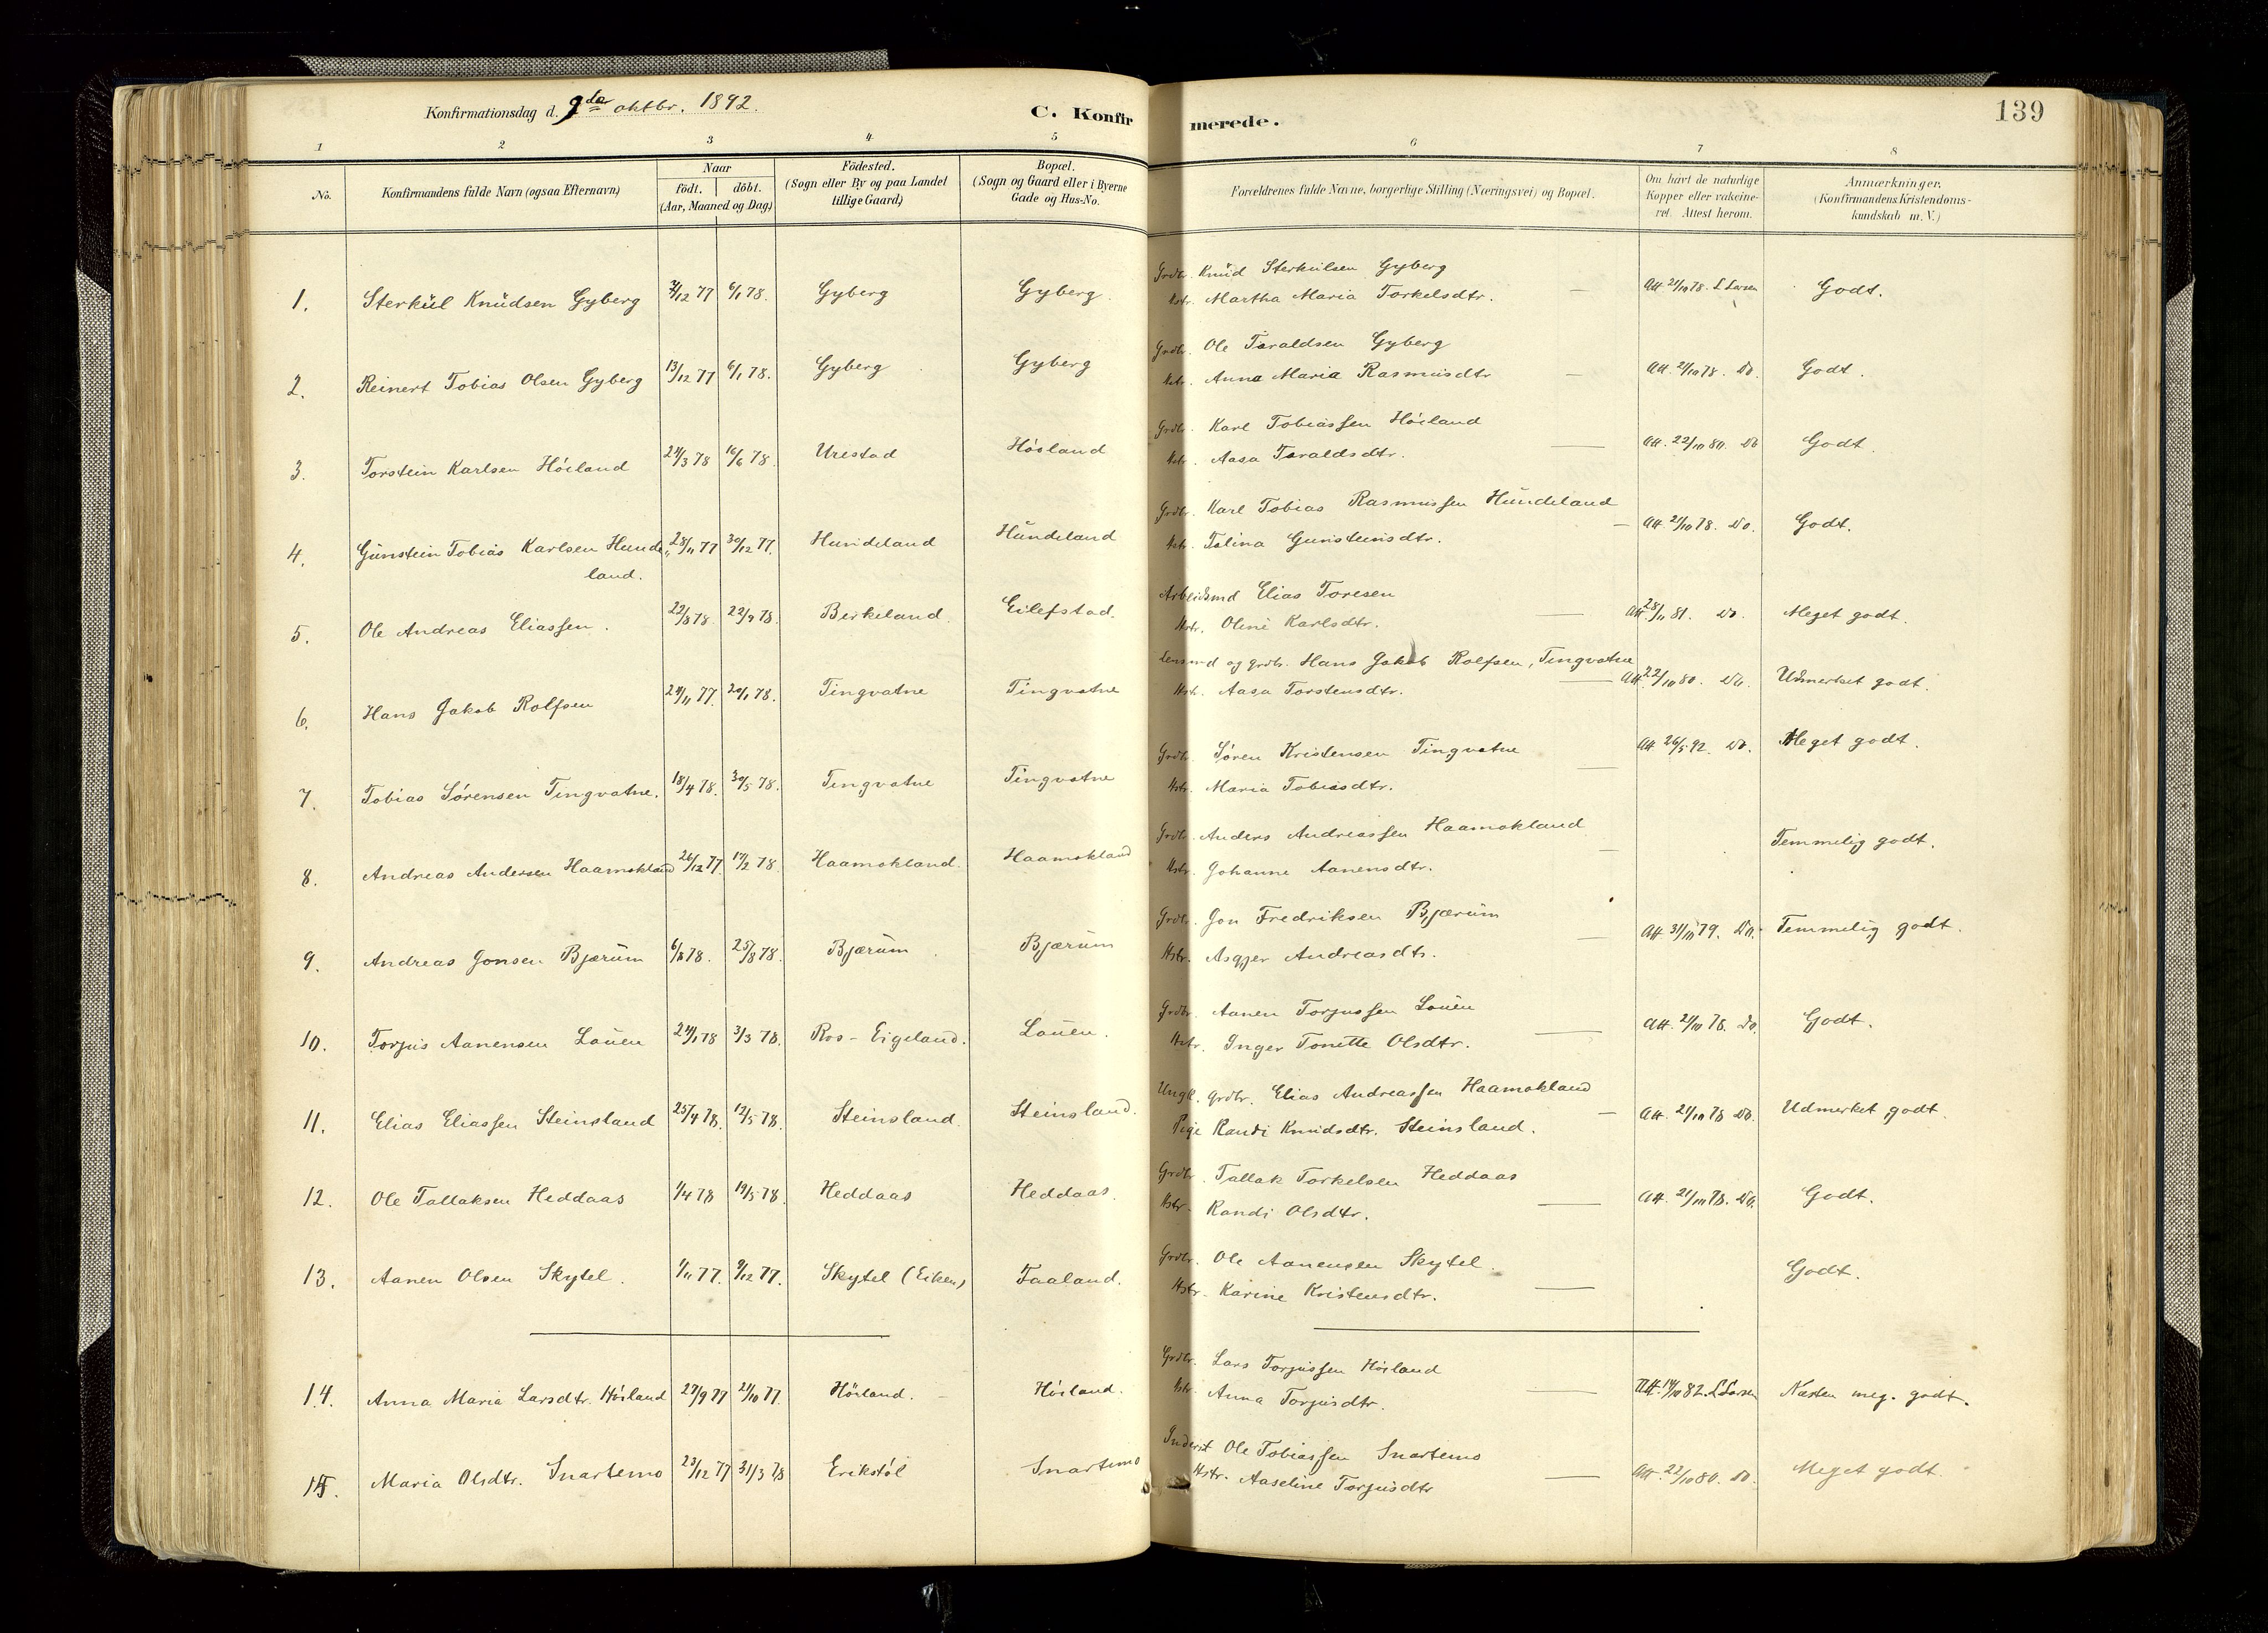 Konfirmationsdag d. 9de oktbr. 1892.
C. Konfirmerede.
139
1 2 3 4 5 6 7 8
No.
Konfirmandens fulde Navn (ogsaa Efternavn)
Naar
födt. döbt.
(Aar, Maaned og Dag)
Födested.
(Sogn eller By og paa Landet
tillige Gaard)
Bopæl.
(Sogn og Gaard eller i Byerne
Gade og Hus-No.
Forældrenes fulde Navne, borgerlige Stilling (Næringsvei) og Bopæl.
Om havt de naturlige
Kopper eller vakcine-
ret. Attest herom.
Anmærkninger.
(Konfirmandens Kristendoms-
kundskab m. V.)
Grdbr. Knud Sterkulsen Gyberg
1. Sterkül Knüdsen Gyberg 77 6/1 78. Gyberg Gyberg. Hstr. Martha Maria Torkelsdtr. — Att. 21/10 78. L Larsen Godt.
Grdbr. Ole Taraldsen Gyberg
2. Reinert Tobias Olsen Gyberg 13/12 77 6/1 78. Gyberg Gyberg Hstr. Anna Maria Rasmusdtr — Att. 21/10 78. Do. Godt.
Grdbr. Karl Tobiassen Höiland
3. Torstein Karlsen Höiland 24/3 78 16/6 78. Urestad Höiland Hstr. Aasa Taraldsdtr. — Att. 22/10 80. Do Godt.
Grdbr. Karl Tobias Rasmussen Hündeland
4. Günstein Tobias Karlsen Hunde 28/11 77 30/12 77. Hundeland Hündeland Hstr. Talina Gunsteinsdtr. — Att. 21/10 78. Do. Godt.
land.
Arbeidsmd Elias Toresen
5. Ole Andreas Eliassen. 22/8 78. 22/9 78. Birkeland. Eilefstad. Hstr. Oline Karlsdtr. — Att. 28/11 81. Do. Meget godt.
Lensmd og grdbr. Hans Jakob Rolfsen, Tingvatne
6. Hans Jakob Rolfsen 24/11 77. 20/1 78. Tingvatne Tingvatne Hstr. Aasa Torstensdtr. — Att. 22/10 80. Do. Udmerket godt.
Grdbr. Søren Kristensen Tingvatne
7. Tobias Sørensen Tingvatne. 18/4 78. 30/5 78. Tingvatne Tingvatne Hstr. Maria Tobiasdtr. — Att. 26/5 92. Do. Meget godt.
Grdbr. Anders Andreassen Haamokland
8. Andreas Andersen Haamokland 26/12 77. 17/2 78. Haamokland. Haamokland Hstr. Johanne Aanensdtr. — Temmelig godt.
Grdbr. Jon Fredriksen Bjærüm
9. Andreas Jonsen Bjærüm 78. 25/8 78. Bjærüm Bjærüm Hstr. Asgjer Andreasdtr. — Att. 31/10 79. Do. Temmelig godt.
Grdbr. Aanen Torjussen Lauen
10. Torjus Aanensen Lauen 24/1 78 3/3 78. Ros-Eigeland. Lauen. Hstr. Inger Tonette Olsdtr. — Att. 21/10 78. Do. Godt.
Ungk. grdbr. Elias Andreassen Haamokland
11. Elias Eliassen Steinsland 25/4 78. 12/5 78. Steinsland. Steinsland. Pige Randi Knudsdtr. Steinsland. — Att. 21/10 78 Do. Udmerket godt
Grdbr. Tallak Torkelsen Heddaas
12. Ole Tallaksen Heddaas 1/4 78 19/5 78. Heddaas Heddaas. Hstr. Randi Olsdtr. — Att. 21/10 78. Do. Godt.
Grdbr. Ole Aanensen Skytel.
13. Aanen Olsen Skytel. 1/11 77. 9/12 77. Skytel (Eiken) Faaland. Hstr. Karine Kristensdtr. — Godt.
Grdbr. Lars Torjussen Höiland
14. Anna Maria Larsdtr. Höiland 27/9 77 21/10 77. Höiland. Höiland. Hstr. Anna Torjusdtr. — Att. 14/10 82. L Larsen Næsten meg. godt.
Inderst Ole Tobiassen Snartemo
15. Maria Olsdtr. Snartemo 23/12 77 31/3 78 Erikstöl Snartemo Hstr. Aaseline Torjusdtr — Att. 22/10 80. Do. Meget godt